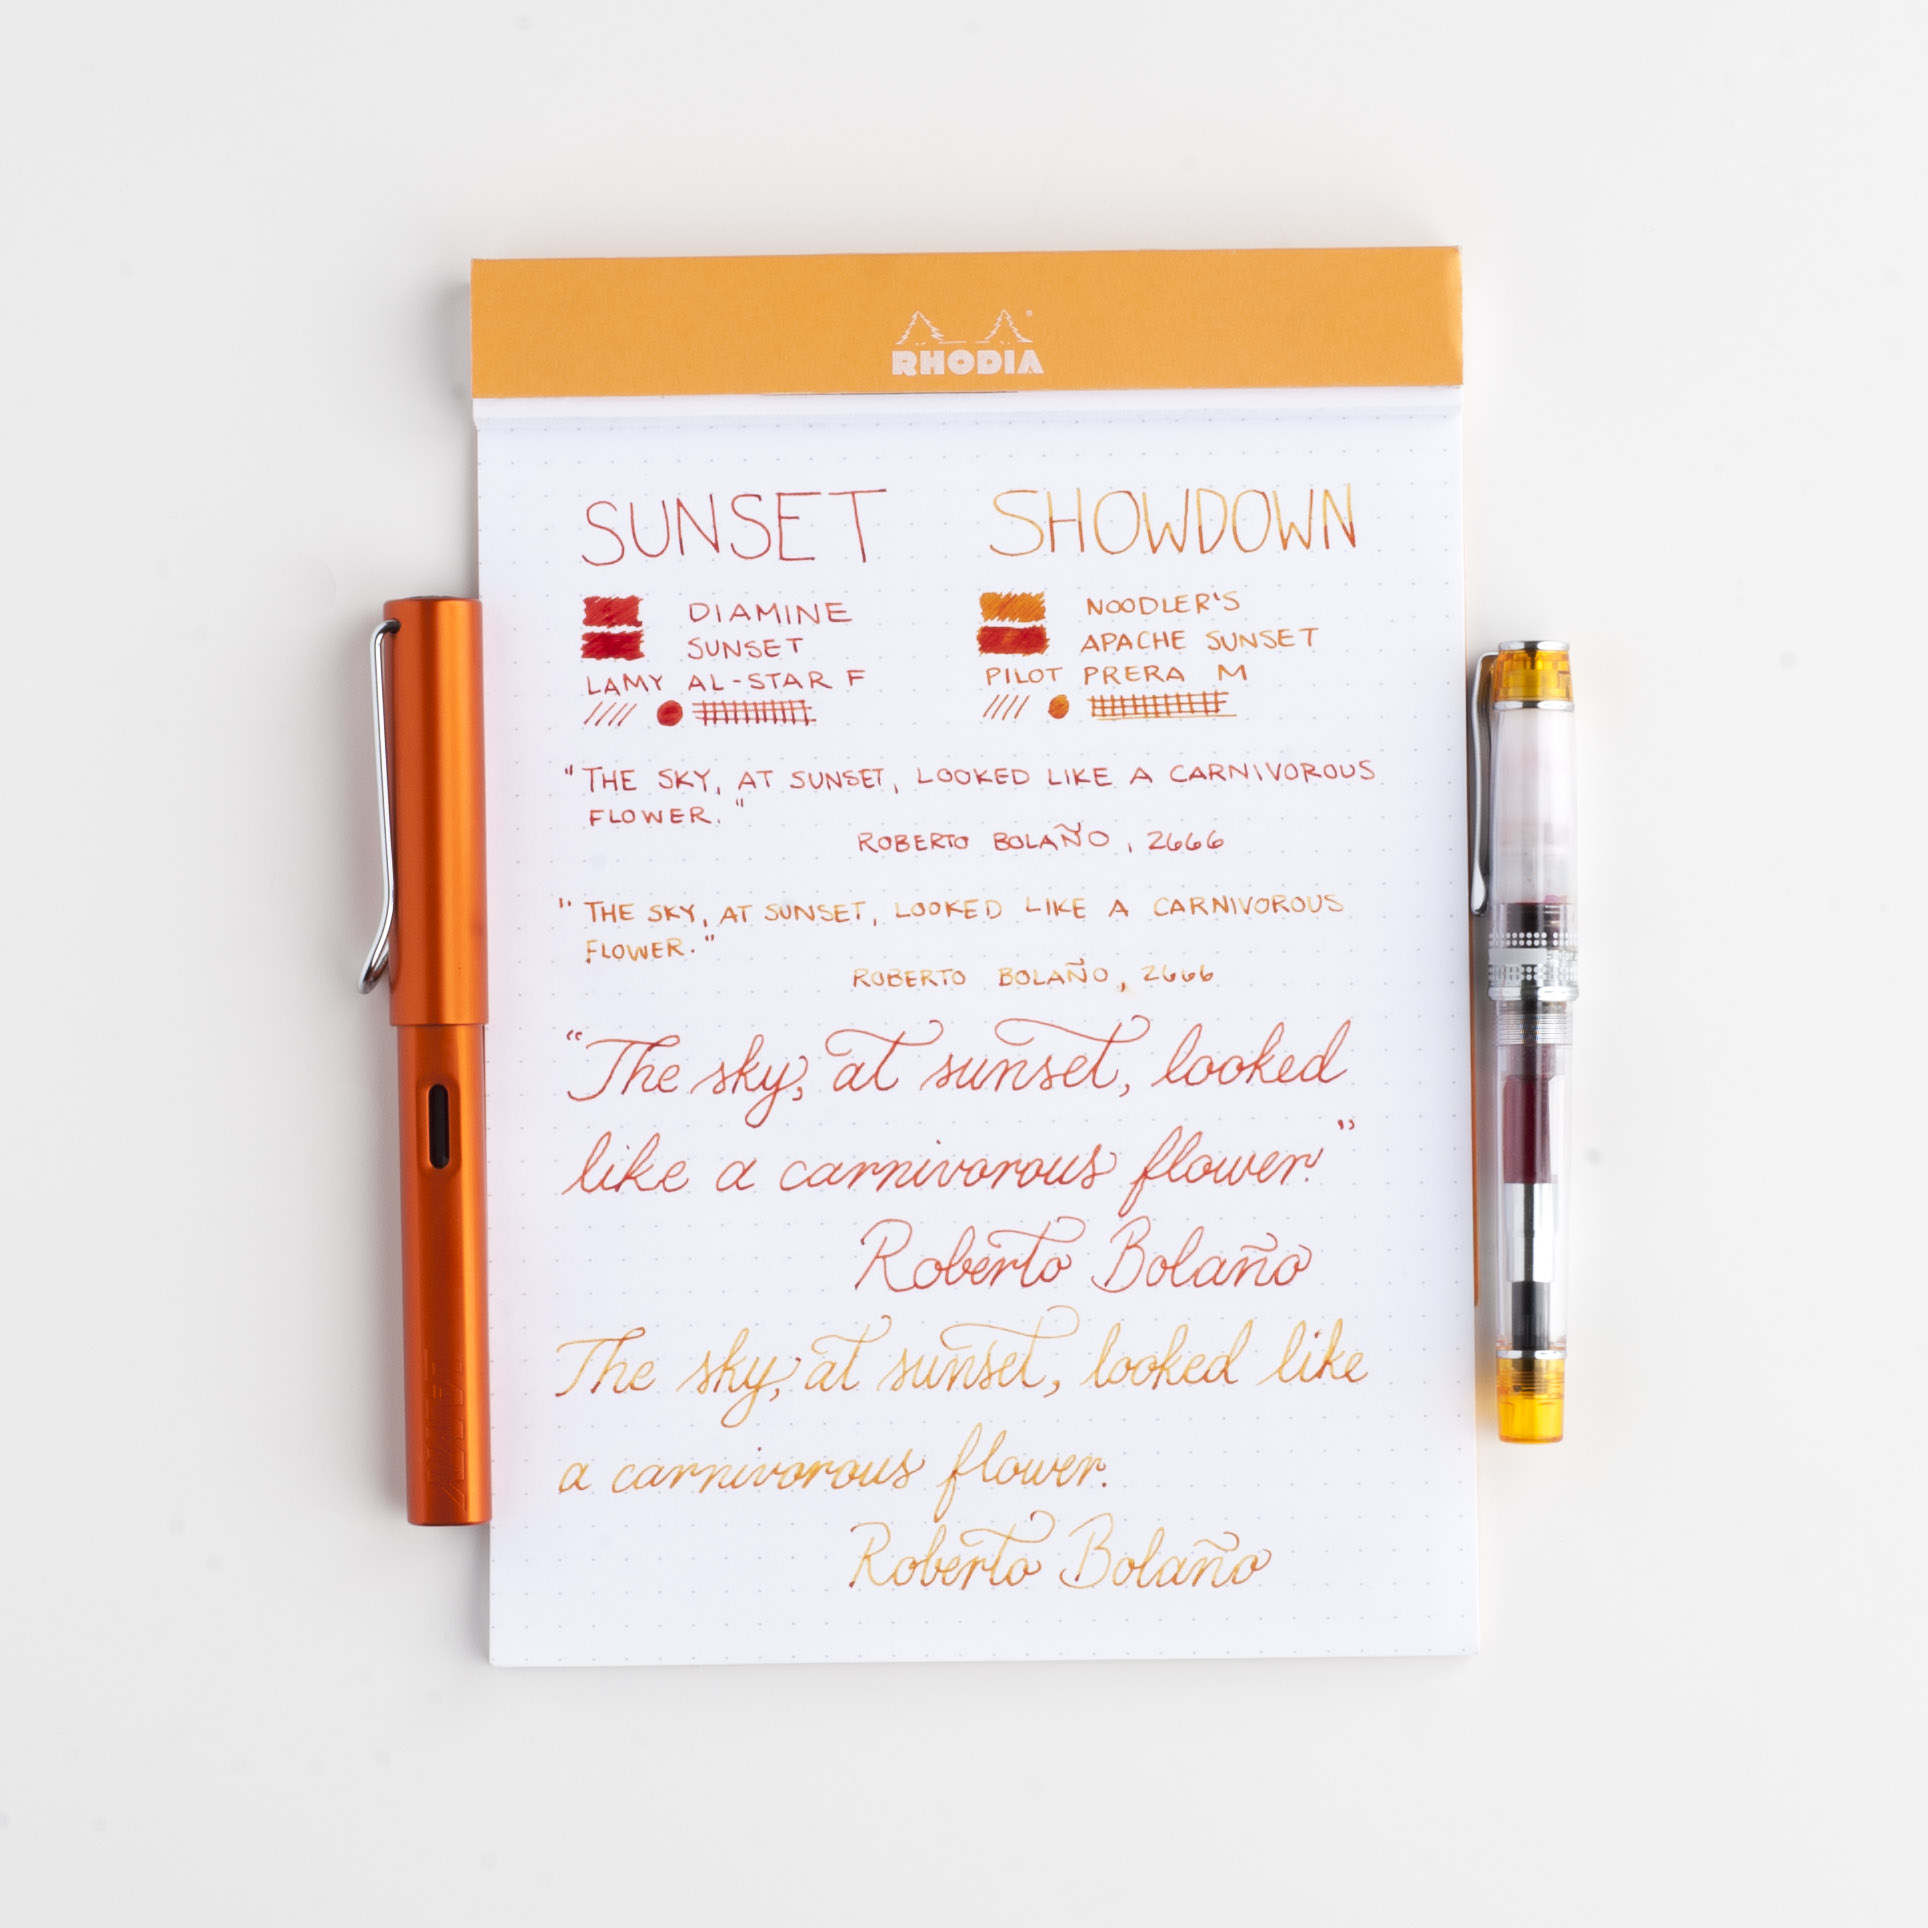 RHODIA
SUNSET SHOWDOWN
DIAMINE
SUNSET
LAMY AL-STAR F
NOODLER'S
APACHE SUNSET
PILOT PRERA M
"THE SKY, AT SUNSET, LOOKED LIKE A CARNIVOROUS
FLOWER."
ROBERTO BOLAÑO, 2666
"THE SKY, AT SUNSET, LOOKED LIKE A CARNIVOROUS
FLOWER."
ROBERTO BOLAÑO, 2666
"The sky, at sunset, looked
like a carnivorous flower."
Roberto Bolaño
The sky, at sunset, looked like
a carnivorous flower.
Roberto Bolaño
LAMY